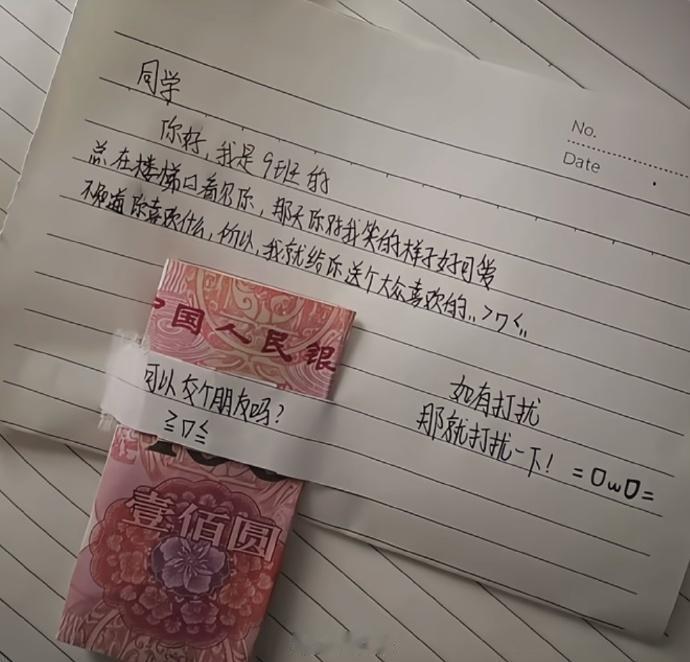 同学
No.
Date
你好，我是9班的
总在楼梯口看见你，那天你对我笑的样子好可爱
不知道你喜欢什么，所以，我就给你送个大众喜欢的，，>ㄇ<，，
中国人民银
可以交个朋友吗？
≧ㄇ≦
100
壹佰圆
如有打扰
那就打扰一下！=OωO=